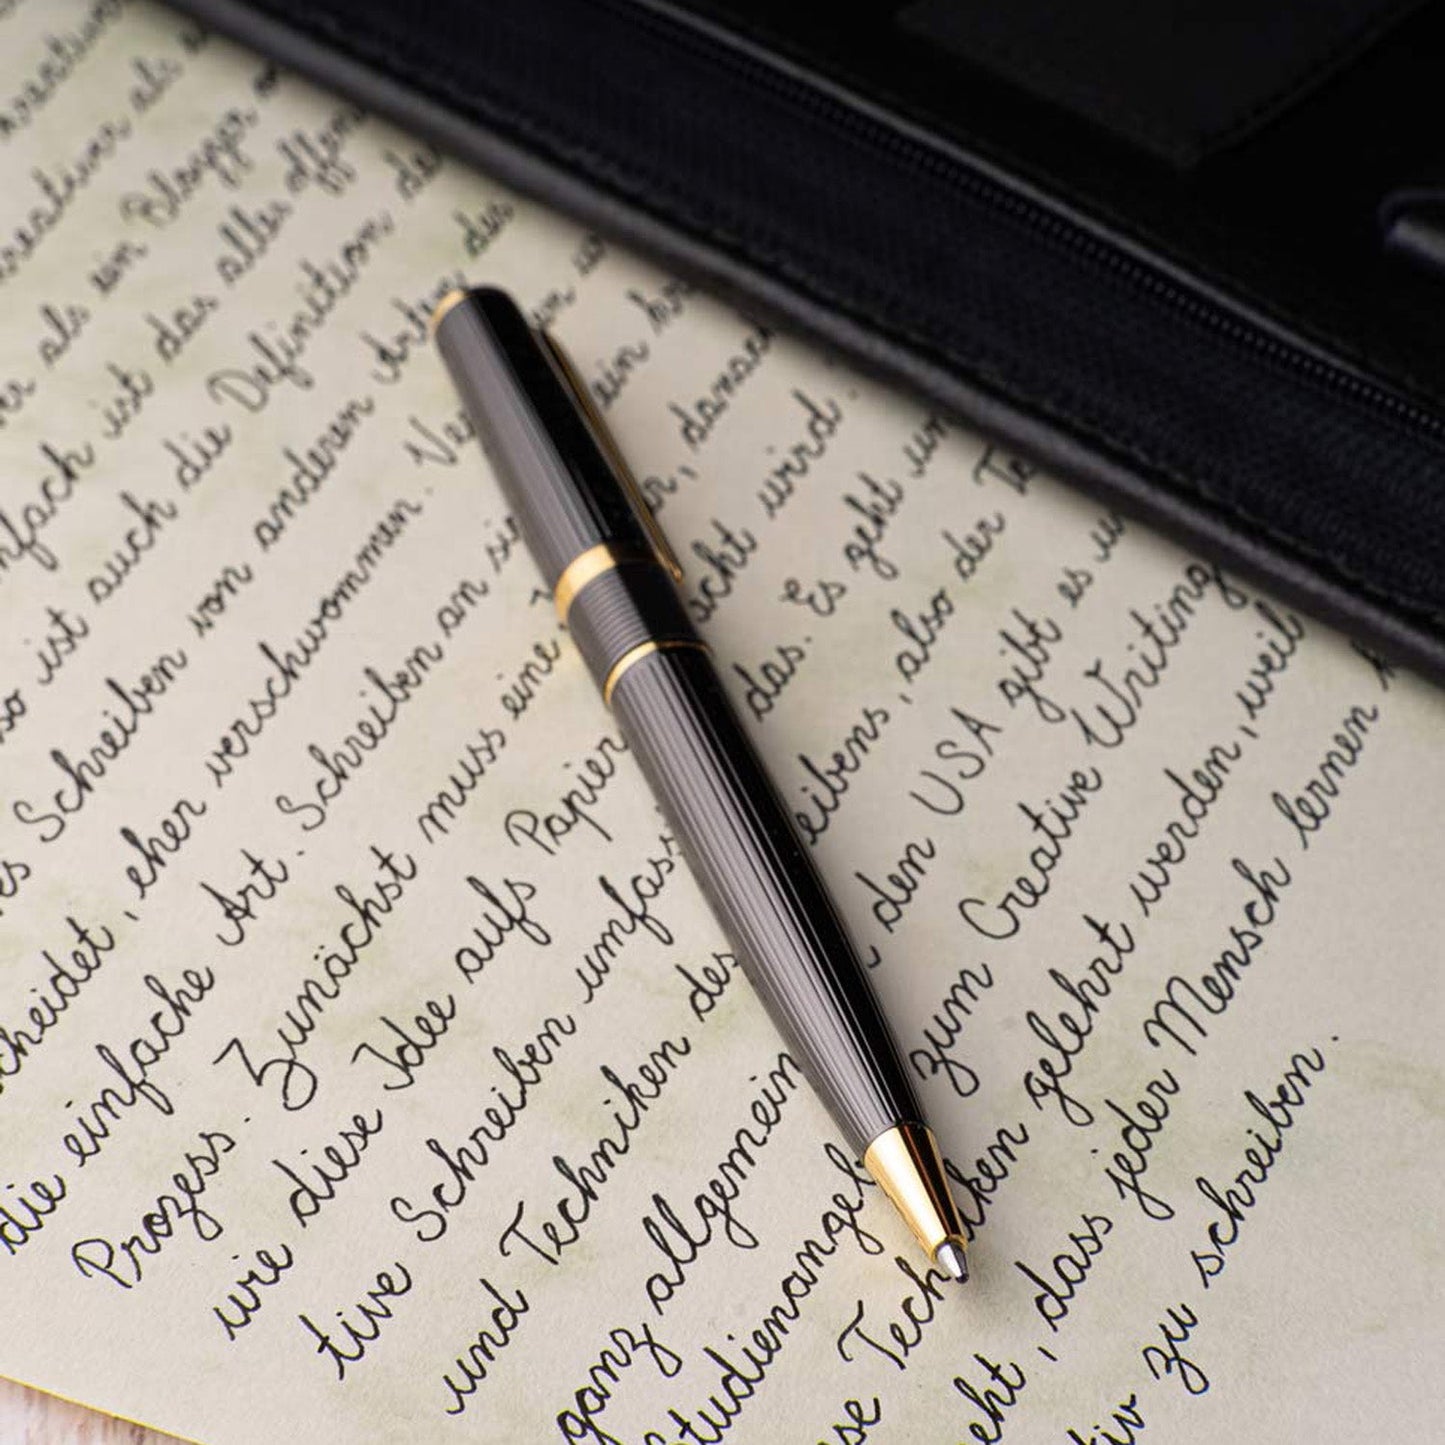 als
als ein Blogger
nfach ist das alles offen
so ist auch die Definition de
es Schreiben von anderen Arten des
cheidet, eher verschwommen. Ve
die einfache Art. Schreiben an si ein kr
Prozess. Zunächst muss eine r, danach
wie diese Idee aufs Papier cht wird.
tive Schreiben umfass das. Es geht um
und Techniken des eibens, also der Te
ganz allgemein den USA gibt es u
Studienange zum Creative Writing
se Tech iken gelehrt werden, weil
eht, dass jeder Mensch lernen k
tiv zu schreiben.